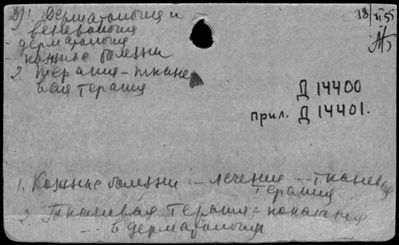 Дерматология и
венерология
- дерматология
- кожные болезни
2. терапия - ткане
вая терапия
18/XI 55
Д 14400
прил. Д 14401.
1. Кожные болезни - лечение - тканевая
терапия
2. Тканевая терапия - показания
- в дерматологии